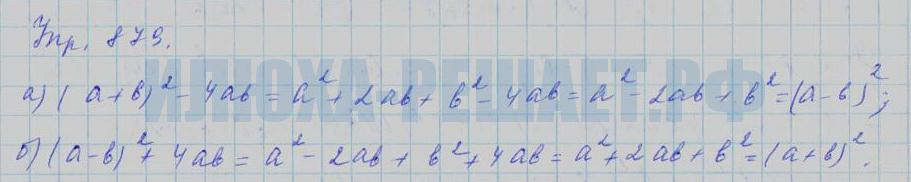 Упр. 879.
ИЛЮХА-РЕШАЕТ.РФ
а) (a+b)² - 4ab = a² + 2ab + b² - 4ab = a² - 2ab + b² = (a-b)²;
б) (a-b)² + 4ab = a² - 2ab + b² + 4ab = a² + 2ab + b² = (a+b)².